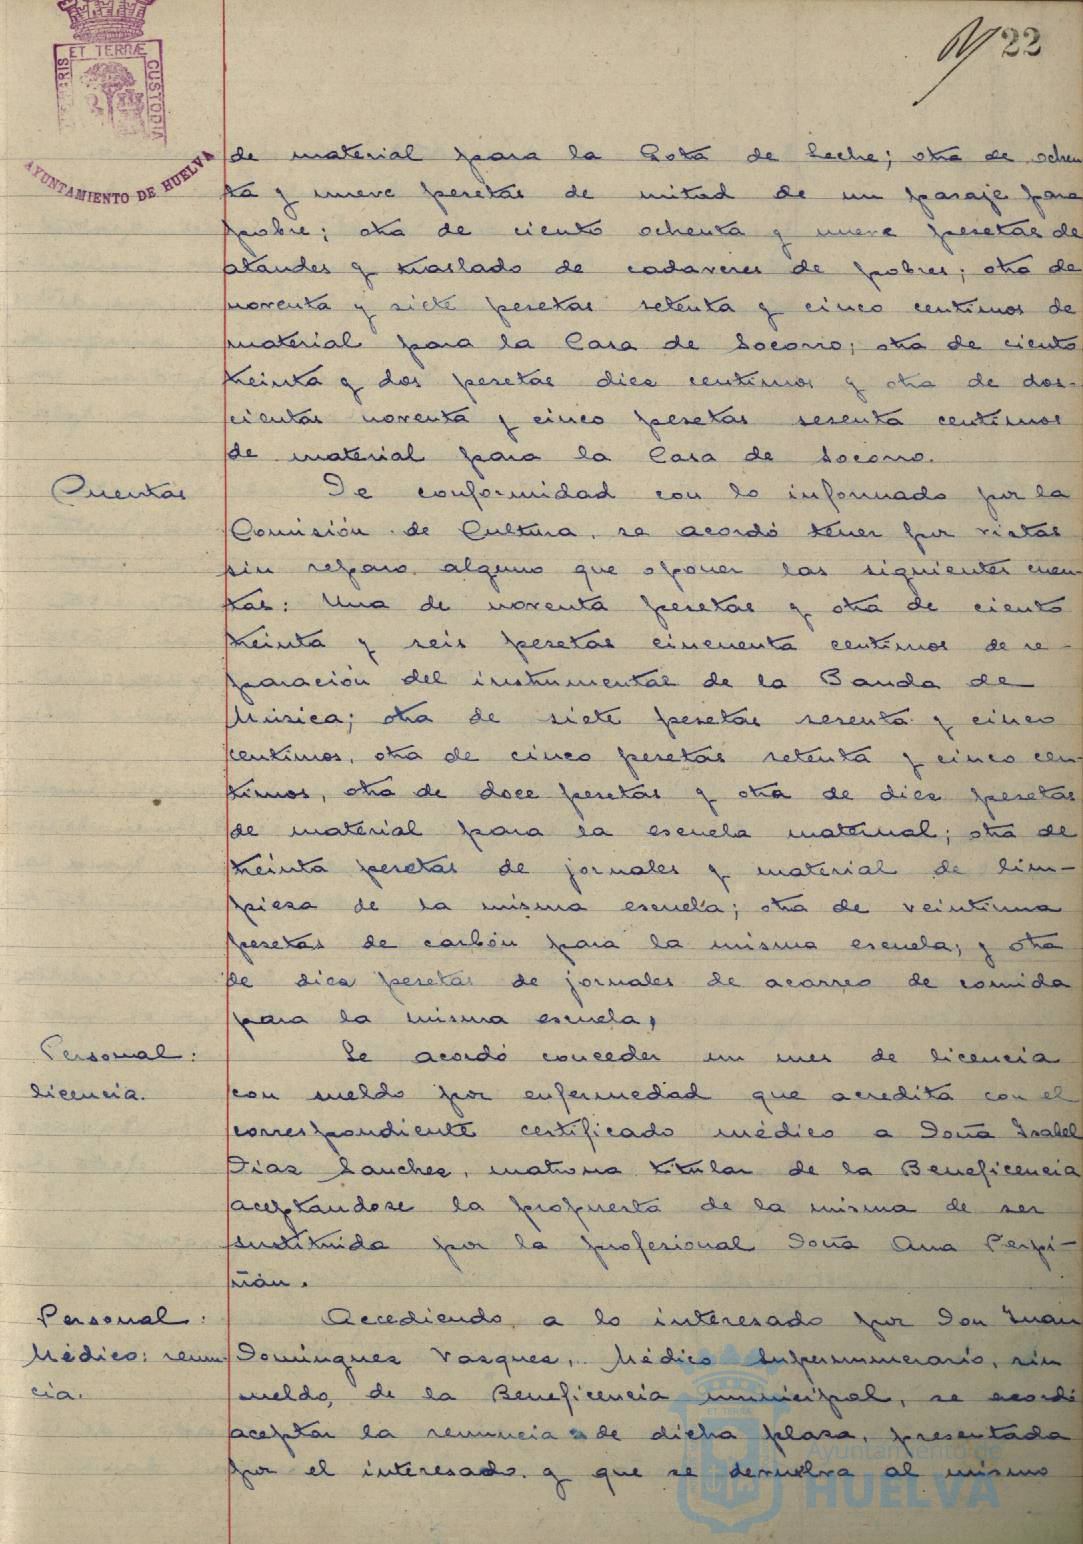 22
PORTUS MARIS ET TERRÆ CUSTODIA
AYUNTAMIENTO DE HUELVA
de material para la Gota de Leche; otra de ochen
ta y nueve pesetas de mitad de un pasaje para
pobre; otra de ciento ochenta y nueve pesetas de
ataudes y traslado de cadaveres de pobres; otra de
noventa y siete pesetas setenta y cinco centimos de
material para la Casa de Socorro; otra de ciento
treinta y dos pesetas diez centimos y otra de dos-
cientas noventa y cinco pesetas sesenta centimos
de material para la Casa de Socorro.
Cuentas
De conformidad con lo informado por la
Comisión de Cultura, se acordó tener por vistas
sin reparo alguno que oponer las siguientes cuen-
tas: Una de noventa pesetas y otra de ciento
treinta y seis pesetas cincuenta centimos de re-
paración del instrumental de la Banda de
Música; otra de siete pesetas sesenta y cinco
centimos, otra de cinco pesetas setenta y cinco cen-
timos, otra de doce pesetas y otra de diez pesetas
de material para la escuela maternal; otra de
treinta pesetas de jornales y material de lim-
pieza de la misma escuela; otra de veintiuna
pesetas de carbón para la misma escuela; y otra
de diez pesetas de jornales de acarreo de comida
para la misma escuela,
Personal:
licencia.
Se acordó conceder un mes de licencia
con sueldo por enfermedad que acredita con el
correspondiente certificado médico a Doña Isabel
Diaz Sanchez, matrona titular de la Beneficencia
aceptandose la propuesta de la misma de ser
sustituida por la profesional Doña Ana Perpi-
ñán.
Personal:
Médico: renun-
cia.
Accediendo a lo interesado por Don Juan
Dominguez Vazquez, Médico Supernumerario, sin
sueldo, de la Beneficencia municipal, se acordó
aceptar la renuncia de dicha plaza, presentada
por el interesado y que se devuelva al mismo
Ayuntamiento de
HUELVA